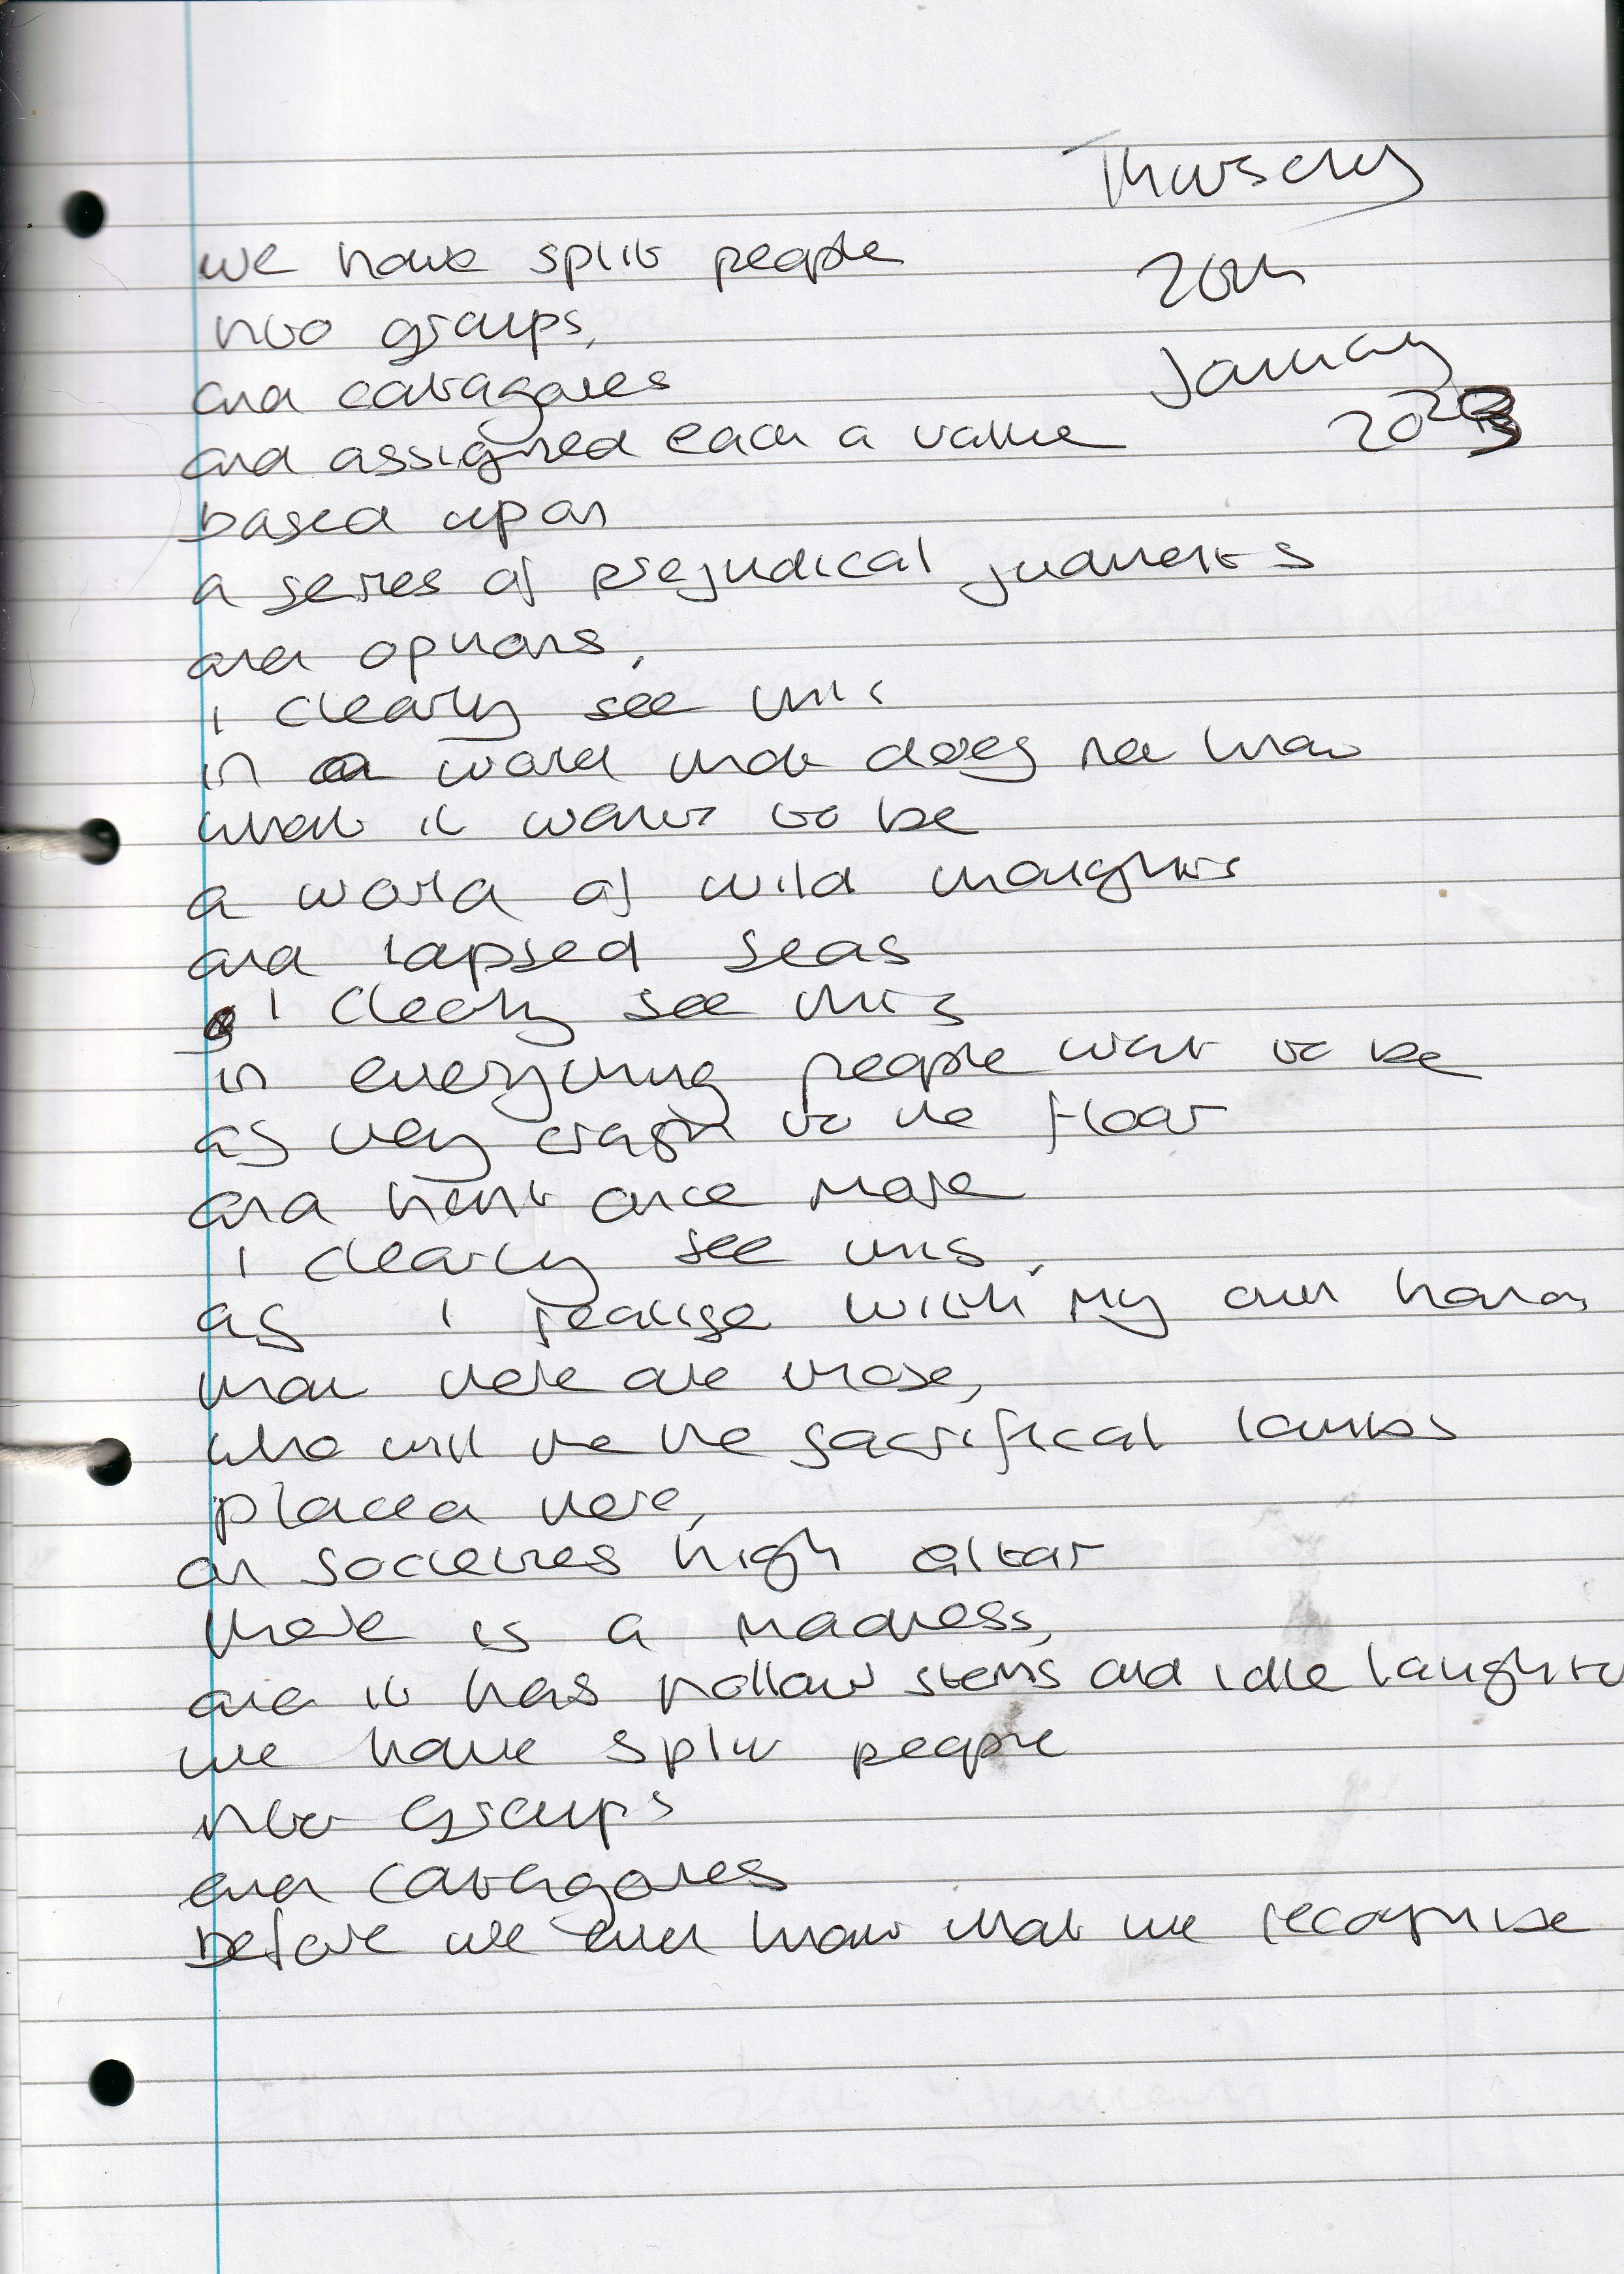 Thursday
we have split people
20th
into groups,
January
and catagories
2023
and assigned each a value
based upon
a series of prejudical judments
and opinions,
i clearly see this
in a world that does not know
what it wants to be
a world of wild thoughts
and lapsed seas
I clearly see this
in everything people want to be
as they crash to the floor
and once more
I clearly see this,
as I realise with my own hands
that there are those,
who will be the sacrifical lambs
placed there,
on societies high altar
there is a madness,
and it has hollow stems and idle laughter
we have split people
into groups
and catagories
before we even know what we recognise